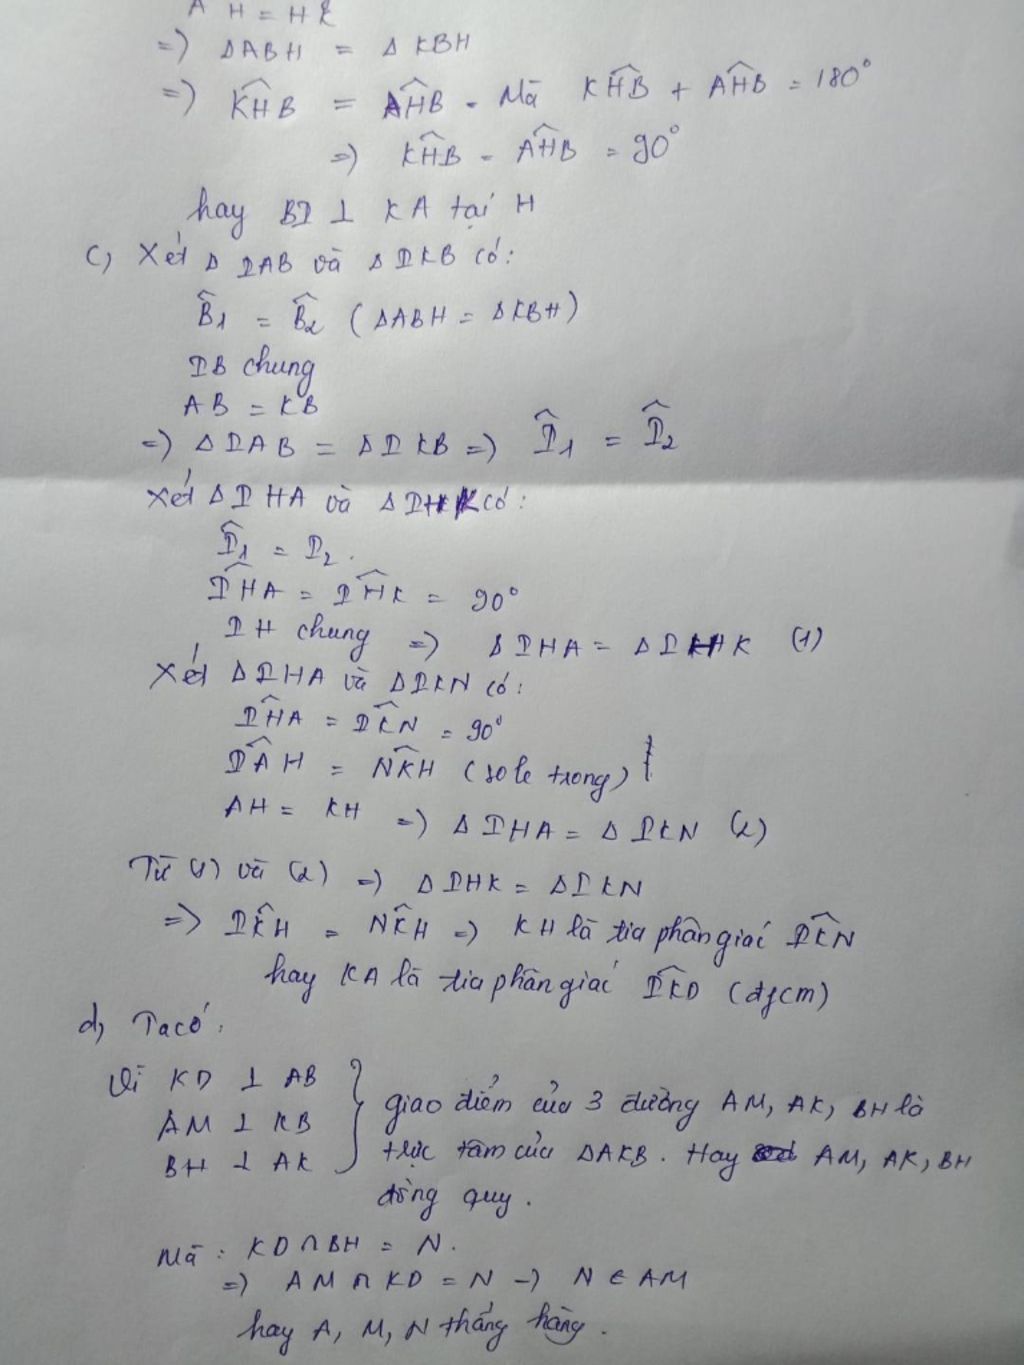 AH = HK
=) ΔABH = ΔKBH
=) \widehat{KHB} = \widehat{AHB}. Mà \widehat{KHB} + \widehat{AHB} = 180°
=) \widehat{KHB} = \widehat{AHB} = 90°
hay BI ⊥ KA tại H
c) Xét Δ IAB và Δ IKB có:
\widehat{B}₁ = \widehat{B}₂ (ΔABH = ΔKBH)
IB chung
AB = KB
=) ΔIAB = ΔIKB =) \widehat{I}₁ = \widehat{I}₂
Xét ΔIHA và ΔIHK có:
\widehat{I}₁ = I₂.
\widehat{IHA} = \widehat{IHK} = 90°
IH chung =) ΔIHA = ΔIHK (1)
Xét ΔIHA và ΔIKN có:
\widehat{IHA} = \widehat{IKN} = 90°
\widehat{IAH} = \widehat{NKH} (sole trong)
AH = KH =) ΔIHA = ΔIKN (2)
Từ (1) và (2) =) ΔIHK = ΔIKN
=> \widehat{IKH} = \widehat{NKH} =) KH là tia phân giác \widehat{IKN}
hay KA là tia phân giác \widehat{IKD} (đfcm)
d) Ta có:
Vì KD ⊥ AB
AM ⊥ KB
BH ⊥ AK
giao điểm của 3 đường AM, AK, BH là
trực tâm của ΔAKB. Hay AM, AK, BH
đồng quy.
Mà: KD ∩ BH = N.
=) AM ∩ KD = N -) N ∈ AM
hay A, M, N thẳng hàng.